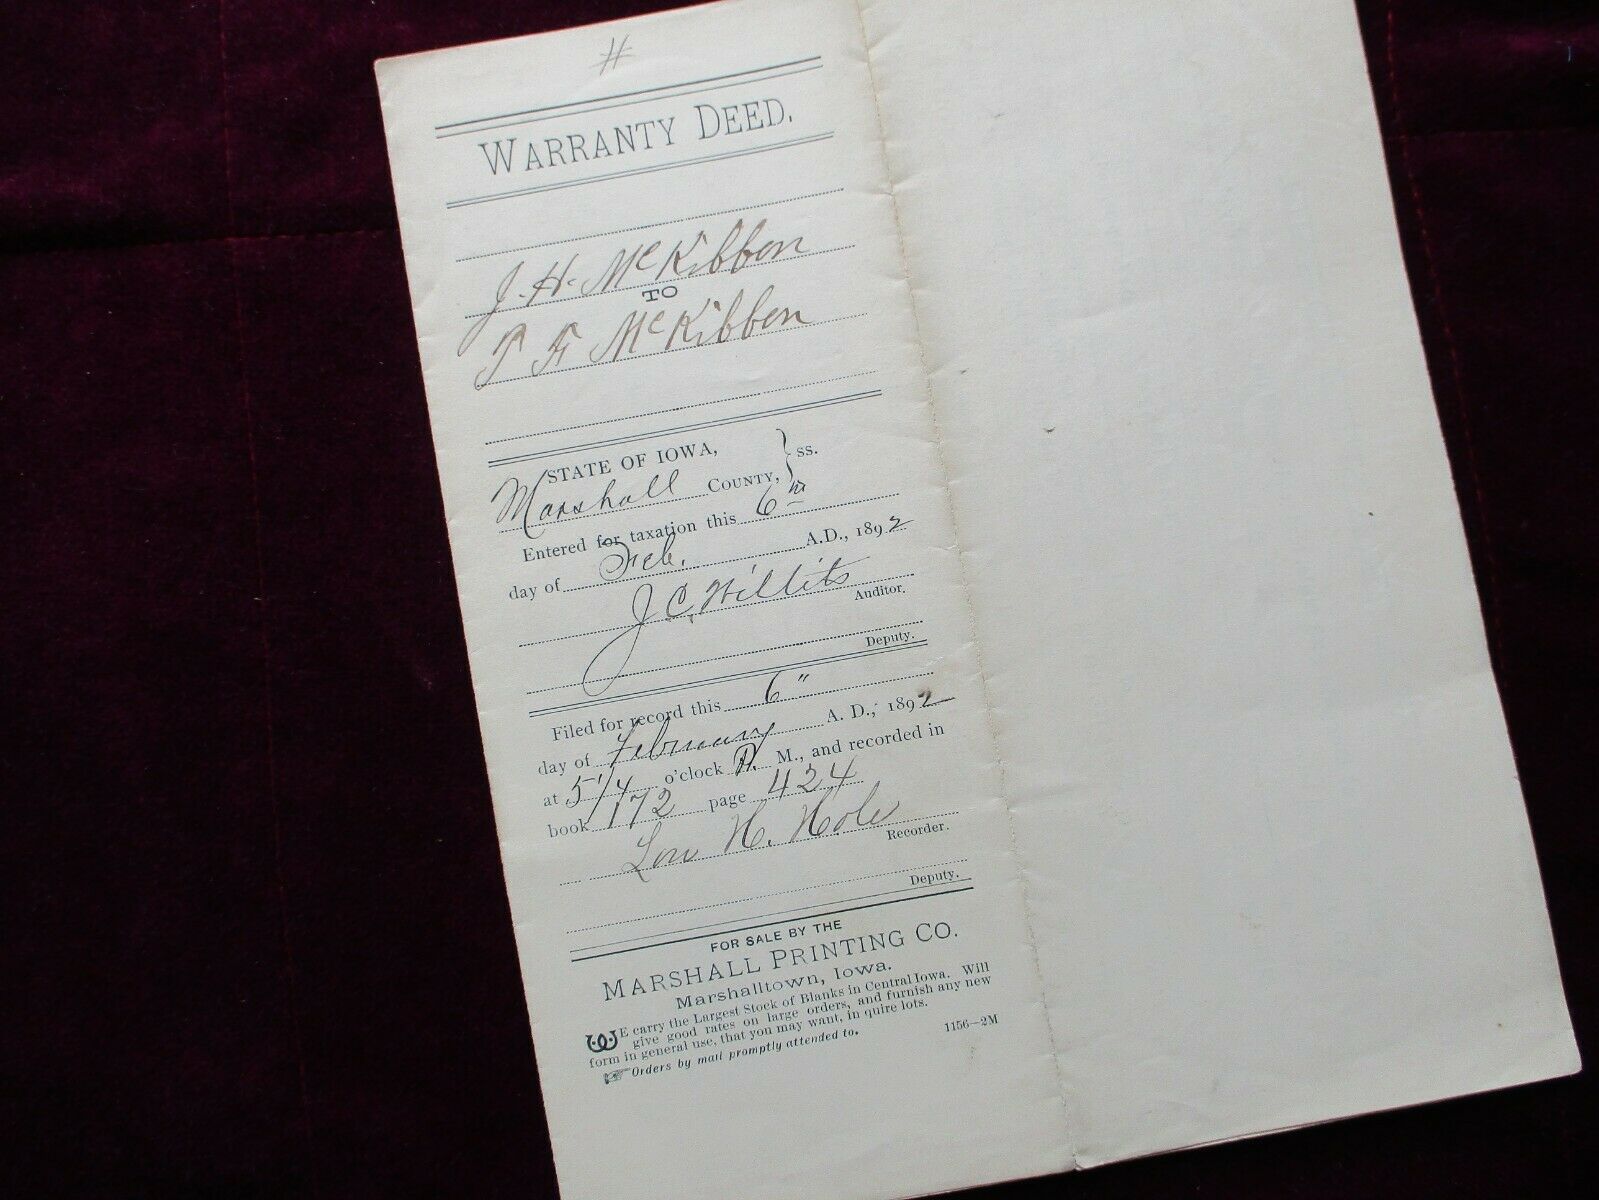 #
WARRANTY DEED.
J. H. McKibbon
TO
T F McKibben
STATE OF IOWA,
Marshall COUNTY, } ss.
Entered for taxation this 6th
day of Feb. A.D., 1892
J C. Willits
Auditor.
Deputy.
Filed for record this 6"
day of February A. D., 1892
at 5 1/4 o'clock P. M., and recorded in
book 172 page 424
Lou H. Hole
Recorder.
Deputy.
FOR SALE BY THE
MARSHALL PRINTING CO.
Marshalltown, Iowa.
WE carry the Largest Stock of Blanks in Central Iowa. Will
give good rates on large orders, and furnish any new
form in general use, that you may want, in quire lots.
Orders by mail promptly attended to.
1156—2M